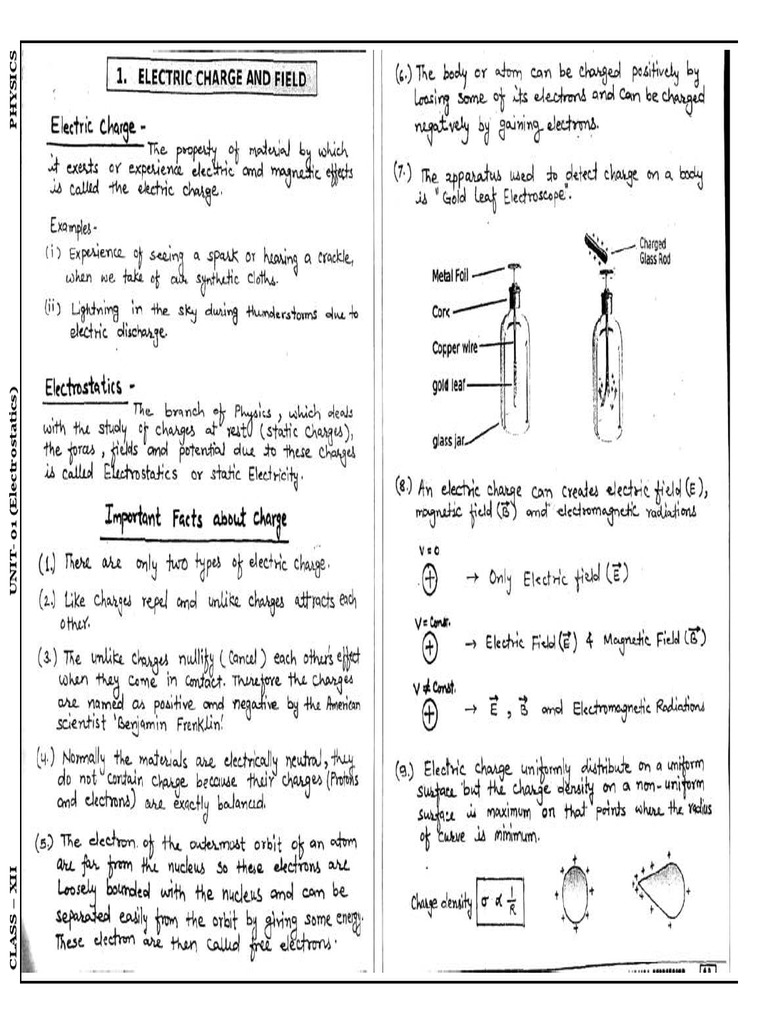 PHYSICS
UNIT- 01 (Electrostatics)
CLASS – XII
1. ELECTRIC CHARGE AND FIELD
Electric Charge -
The property of material by which
it exerts or experience electric and magnetic effects
is called the electric charge.
Examples-
(i) Experience of seeing a spark or hearing a crackle,
when we take of our synthetic cloths.
(ii) Lightning in the sky during thunderstorms due to
electric discharge.
Electrostatics -
The branch of Physics, which deals
with the study of charges at rest (static charges),
the forces, fields and potential due to these charges
is called Electrostatics or static Electricity.
Important Facts about Charge
(1.) There are only two types of electric charge.
(2.) Like charges repel and unlike charges attracts each
other.
(3.) The unlike charges nullify (Cancel) each other's effect
when they come in contact. Therefore the charges
are named as positive and negative by the American
scientist 'Benjamin Frenklin'.
(4.) Normally the materials are electrically neutral, they
do not contain charge because their charges (Protons
and electrons) are exactly balanced.
(5.) The electron of the outermost orbit of an atom
are far from the nucleus so these electrons are
Loosely bounded with the nucleus and can be
separated easily from the orbit by giving some energy.
These electron are then called free electrons.
(6.) The body or atom can be charged positively by
loosing some of its electrons and can be charged
negatively by gaining electrons.
(7.) The apparatus used to detect charge on a body
is "Gold Leaf Electroscope".
Charged
Glass Rod
Metal Foil
Corc
Copper wire
gold leaf
glass jar
(8.) An electric charge can creates electric field (E⃗),
magnetic field (B⃗) and electromagnetic radiations
V = 0
+ → Only Electric field (E⃗)
V = Const.
+ → Electric Field (E⃗) & Magnetic Field (B⃗)
V ≠ Const.
+ → E⃗, B⃗ and Electromagnetic Radiations
(9.) Electric charge uniformly distribute on a uniform
surface but the charge density on a non-uniform
surface is maximum on that points where the radius
of curve is minimum.
Charge density σ ∝ 1/R